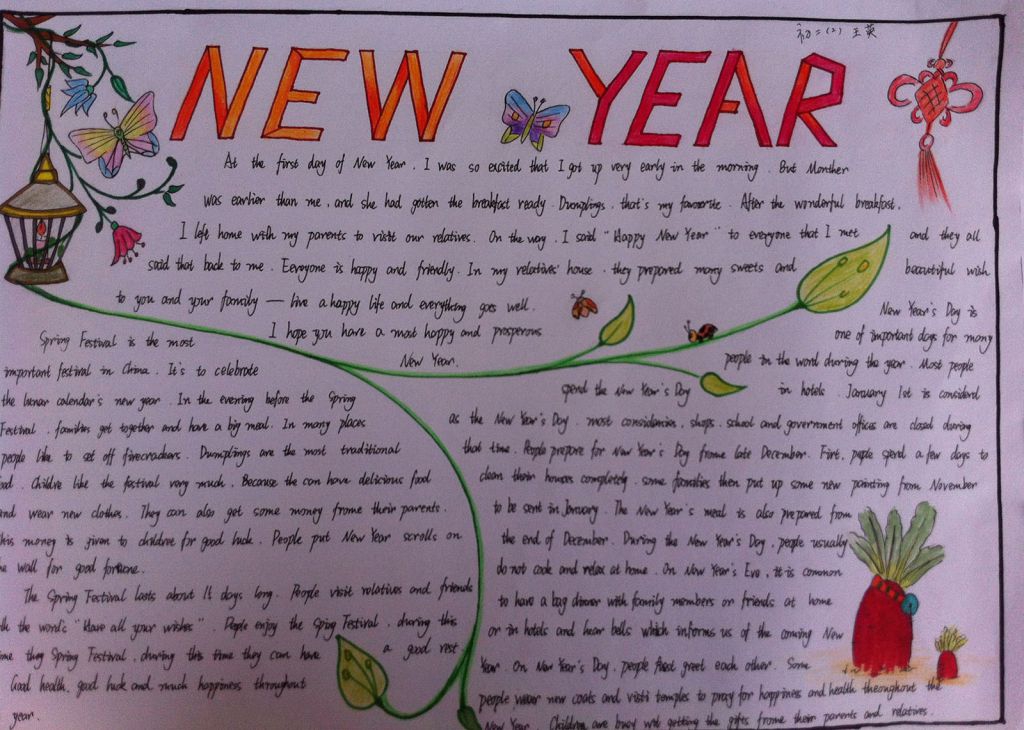 初二(2) 王英
NEW YEAR
At the first day of New Year. I was so excited that I got up very early in the morning. But Monther
was earhier than me, and she had gotten the breakfast ready. Dumplings, that's my favourite. After the wonderful breakfast,
I left home with my parents to visit our relatives. On the way. I said "Happy New Year" to everyone that I met and they all
said that back to me. Eeveryone is happy and friendly. In my relatives' house, they prepared many sweets and beautiful wish
to you and your family — live a happy life and everything goes well.
I hope you have a most happy and prosperous
New Year.
Spring Festival is the most
important festival in China. It's to celebrate
the lunar calendar's new year. In the evening before the Spring
Festival, families get together and have a big meal. In many places
people like to set off firecrackers. Dumplings are the most traditional
ood. Childre like the festival very much. Because the can have delicious food
and wear new clothes. They can also get some money frome their parents.
his money is given to children for good luck. People put New Year scrolls on
e wall for good fortune.
The Spring Festival lasts about 15 days long. People visit relatives and friends
th the words "Have all your wishes". People enjoy the Sping Festival, during this
me they Spring Festival, during this time they can have a good rest
Good health, good luck and much happiness throughout
year.
New Year's Day is
one of important days for many
people in the word during the year. Most people
spend the New Year's Day in hotels. January 1st is considerd
as the New Year's Day. most considanies, shops, school and government offices are closed during
that time. People prepare for New Year's Day frome late December. First, people spend a few days to
clean their houses completely. some families then put up some new painting from November
to be sent in January. The New Year's meal is also prepared from
the end of December. During the New Year's Day, people usually
do not cook and relax at home. On New Year's Eve, it is common
to have a bag dinner with family members or friends at home
or in hotels and hear bells which informs us of the coming New
Year. On New Year's Day, people greet each other. Some
people wear new coats and visti temples to pray for happiness and health throughout the
New Year. Children are busy with getting the gifts frome their parents and relatives.